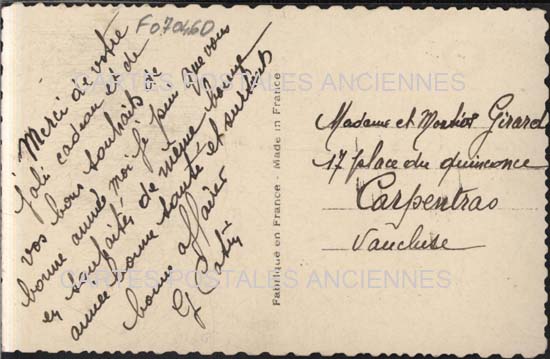 F070460
Merci de votre
joli cadeau et de
vos bons souhaits de
bonne année moi je puis que vous
en souhaiter de même bonne
année bonne santé et surtout
bonne affaire
G
Fabriqué en France - Made in France
Madame et Girard
17 place du quinconce
Carpentras
Vaucluse
CARTES POSTALES ANCIENNES
CARTES POSTALES ANCIENNES